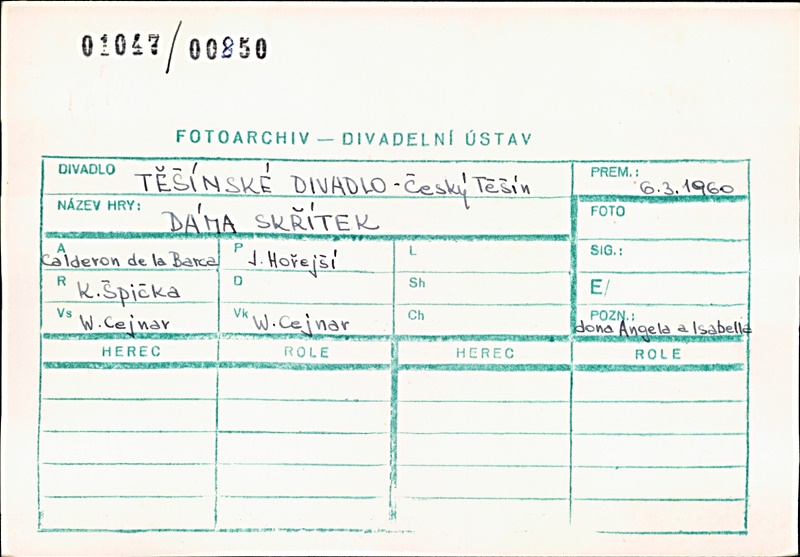 01047/00850
FOTOARCHIV — DIVADELNÍ ÚSTAV
DIVADLO TĚŠÍNSKÉ DIVADLO - Český Těšín
PREM.: 6.3.1960
NÁZEV HRY: DÁMA SKŘÍTEK
FOTO
A Calderon de la Barca
P J. Hořejší
L
SIG.:
R K. Špička
D
Sh
E/
Vs W. Cejnar
Vk W. Cejnar
Ch
POZN.: dona Angela a Isabella
HEREC ROLE HEREC ROLE